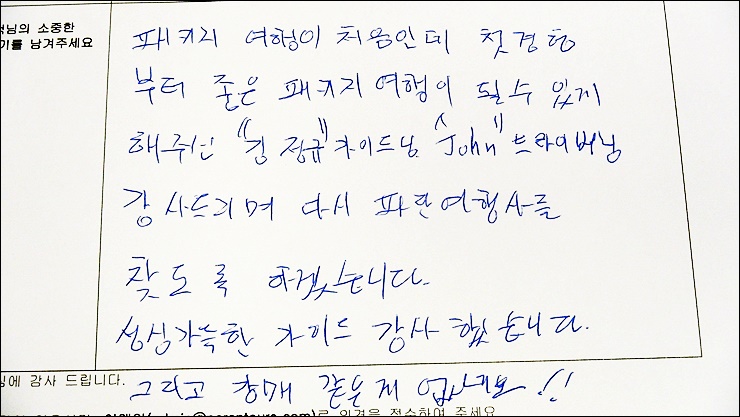 님의 소중한
기를 남겨주세요
패키지 여행이 처음인데 첫경험
부터 좋은 패키지여행이 될수 있게
해주신 "김 정규" 가이드님 "John" 드라이버님
감사드리며 다시 파란여행사를
찾도록 하겠습니다.
성심가득한 가이드 감사 했습니다.
에 감사 드립니다.
그리고 창매 같은게 없사요!!
로 의견을 접수하여 주세요